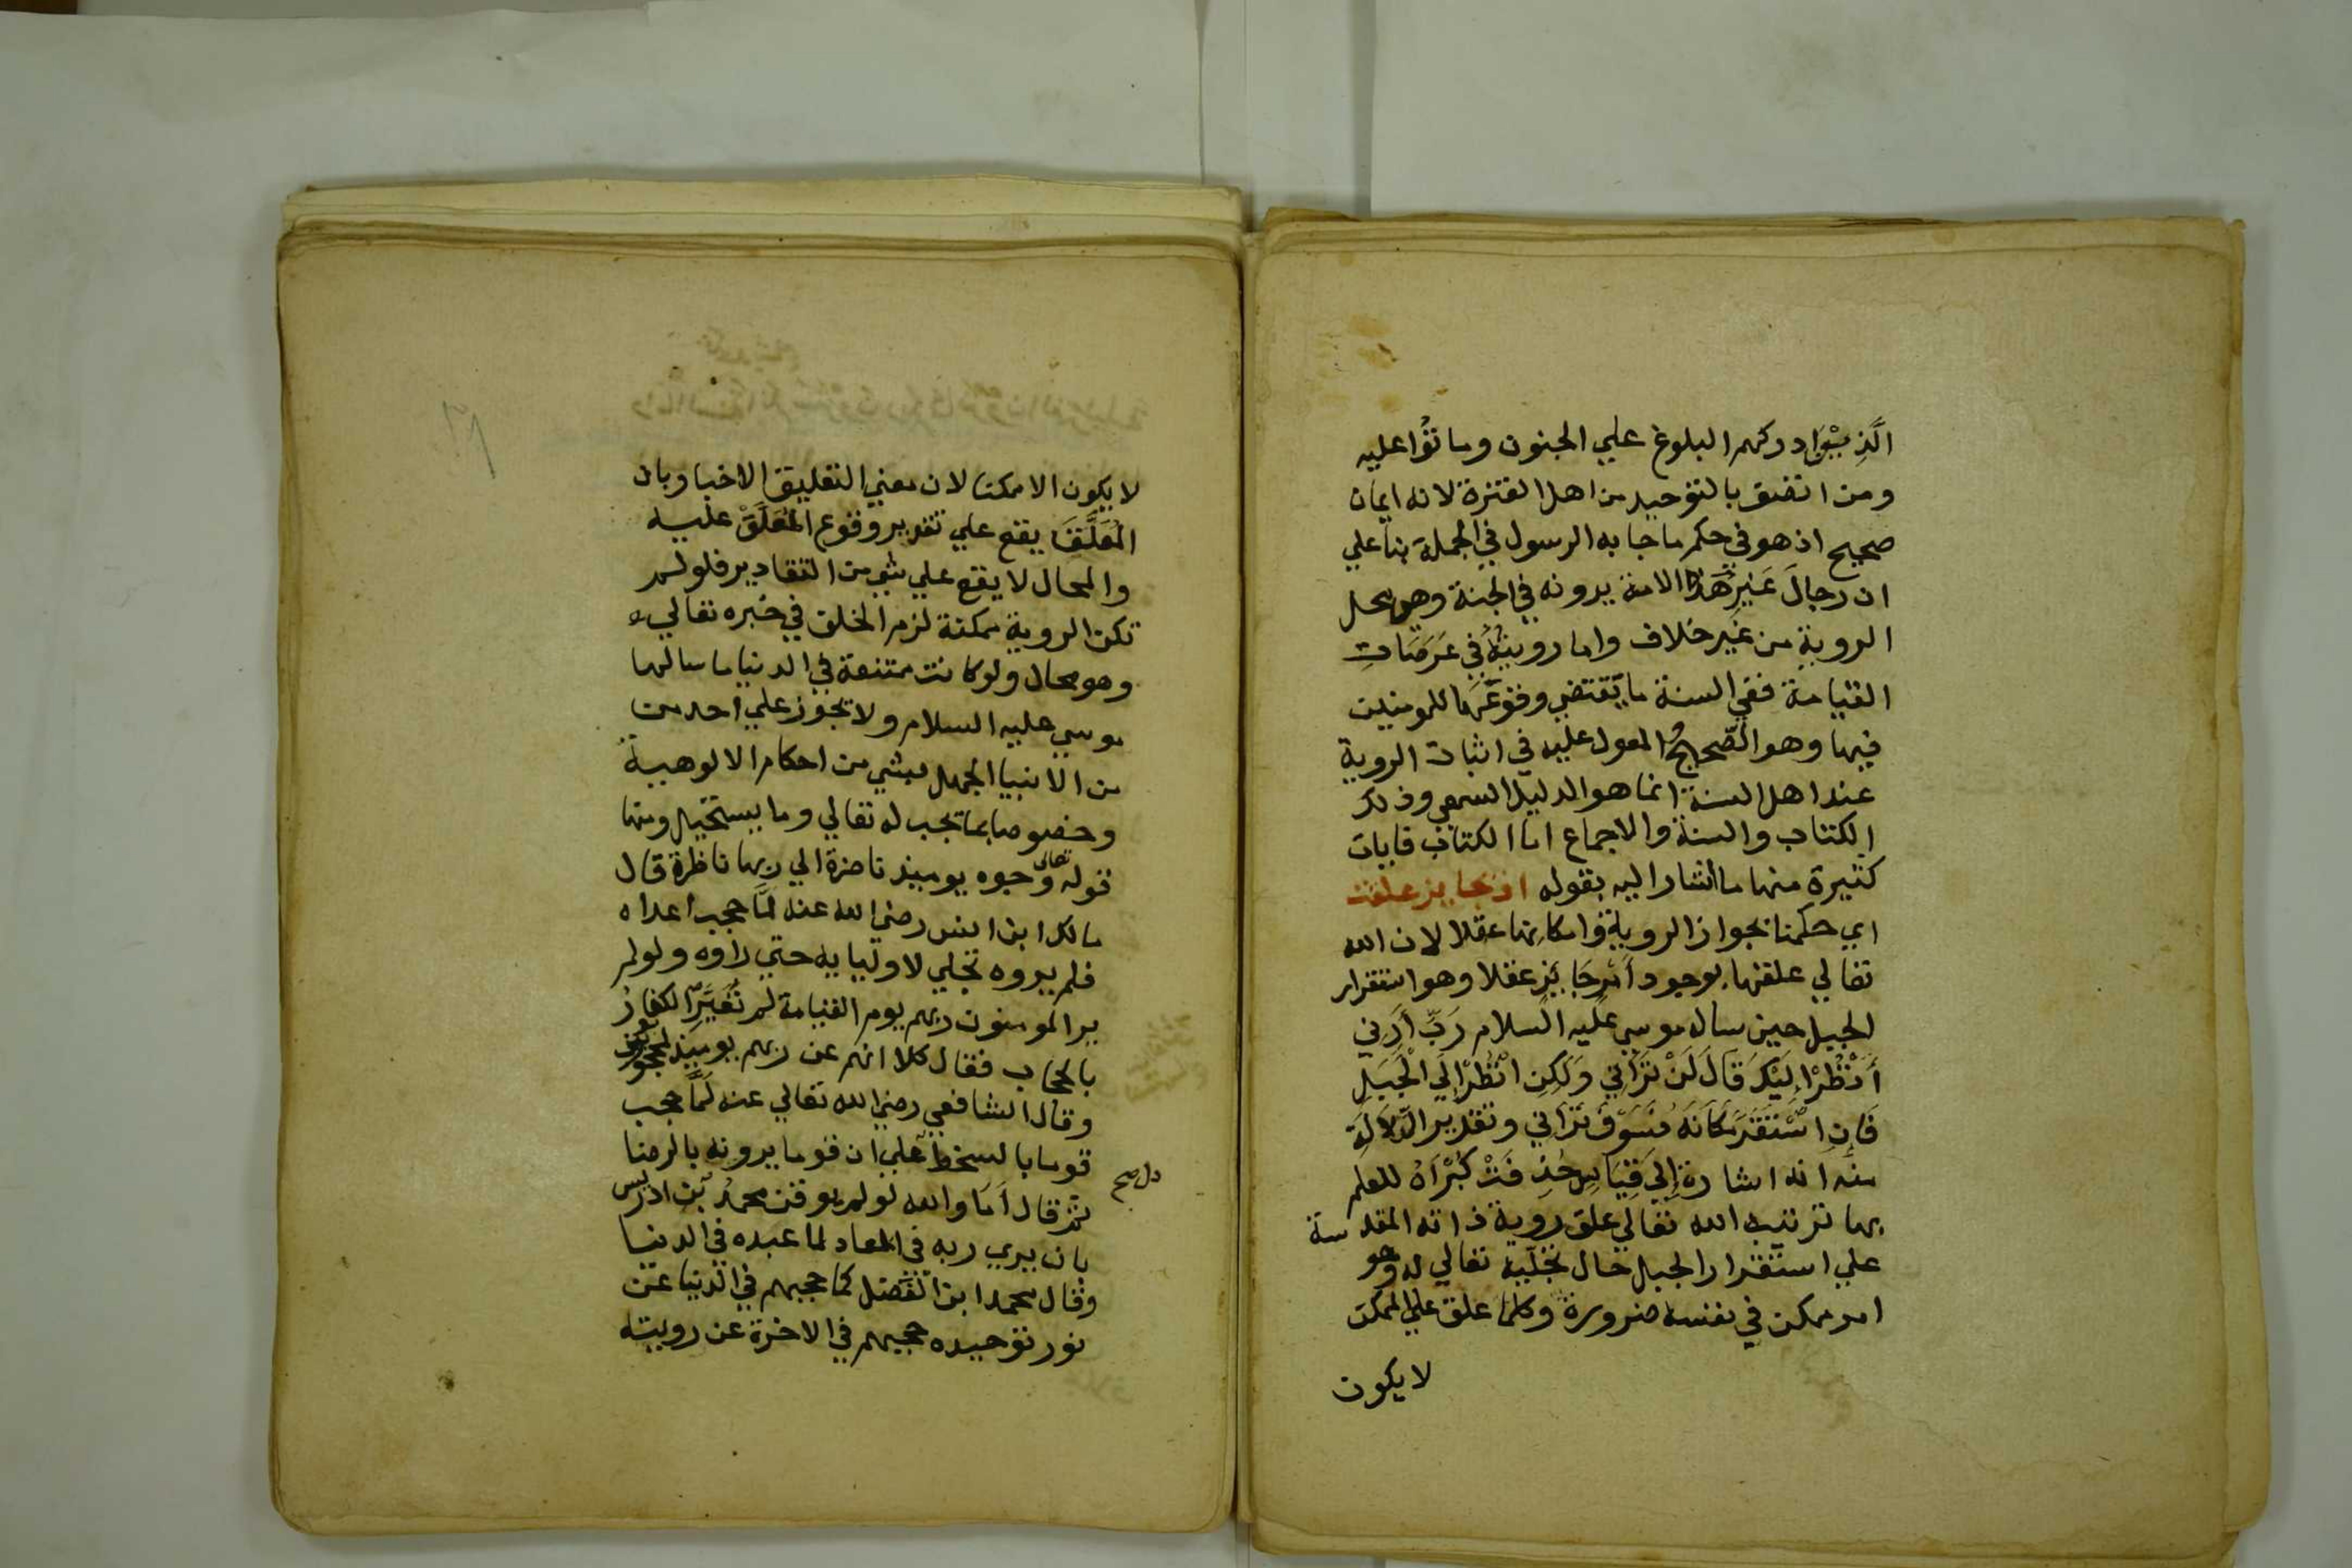 الَّذِينَ ادركهم البلوغ علي الجنون وماتوا عليه
ومن اتصف بالتوحيد من اهل الفترة لانه ايمان
صحيح اذ هو في حكم ما جا به الرسول في الجملة بنا علي
ان رجالَ غَيرِ هَذا الامة يرونه في الجنة وهي محل
الروية من غير خلاف واما رويتُهُ في عَرَصَاتِ
القيامة ففي السنة ما يقتضي وقوعَها للمومنين
فيها وهو الصَّحيحُ والمعول عليه في اثبات الروية
عند اهل السنة انما هو الدليل السمعي وذلك
الكتاب والسنة والاجماع اما الكتاب فايات
كثيرة منها ما اشار اليه بقوله اذ بجايز علقت
اي حكمنا بجواز الروية وامكانها عقلا لان الله
تعالي علقها بوجود أمرجَايزٍ عقلا وهو استقرار
الجبل حين ساله موسي عليه السلام رَبِّ أَرِنِي
أَنْظُرْ إِلَيْكَ قَالَ لَنْ تَرَانِي وَلَكِنِ انْظُرْ إِلَي الْجَبَلِ
فَإِنِ اسْتَقَرَّ مَكَانَهُ فَسَوْفَ تَرَانِي وتقدير الدَّلالَةِ
منه انه اشارة إِلي قِيَاسٍ حُذِفَتْ كُبْرَاهُ للعلم
بها ترتيبه الله تعالي علق روية ذاته المقدسة
علي استقرار الجبل حال تجليه تعالي له وهو
امر ممكن في نفسه ضرورة وكلما علق علي الممكن
لا يكون
لا يكون الا ممكنا لان معني التعليق الاخبار بان
المُعَلَّقَ يقع علي تقدير وقوع المُعَلَّقِ عليه
والمحال لا يقع علي شي من التقادير فلو لم
تكن الروية ممكنة لزم الخلف في خبره تعالي
وهو محال ولو كانت ممتنعة في الدنيا ما سالها
موسي عليه السلام ولا يجوز علي احد من
من الانبيا الجهل بشي من احكام الالوهية
وخصوصا بما يجب له تعالي وما يستحيل ومنها
قوله تعالى وجوه يوميذ ناضرة الي ربها ناظرة قال
مالك ابن انس رضي الله عنه لمَّا حجب اعداه
فلم يروه تجلي لاوليايه حتي راوه ولو لم
ير المومنون ربهم يوم القيامة لم تُعَيَّرِ الكفارُ
بالحجاب فقال كلا انهم عن ربهم يوميذ لمحجوبون
وقال الشافعي رضي الله تعالي عنه لَمَّا حجب
قوما بالسخط علي ان قوما يرونه بالرضا
دل صح
ثم قال أمَا والله لو لم يوقن محمدُ بن ادريس
بان يري ربه في المعاد لما عبده في الدنيا
وقال محمد ابن الفضل كما حجبهم في الدنيا عن
نور توحيده حجبهم في الاخرة عن رويته